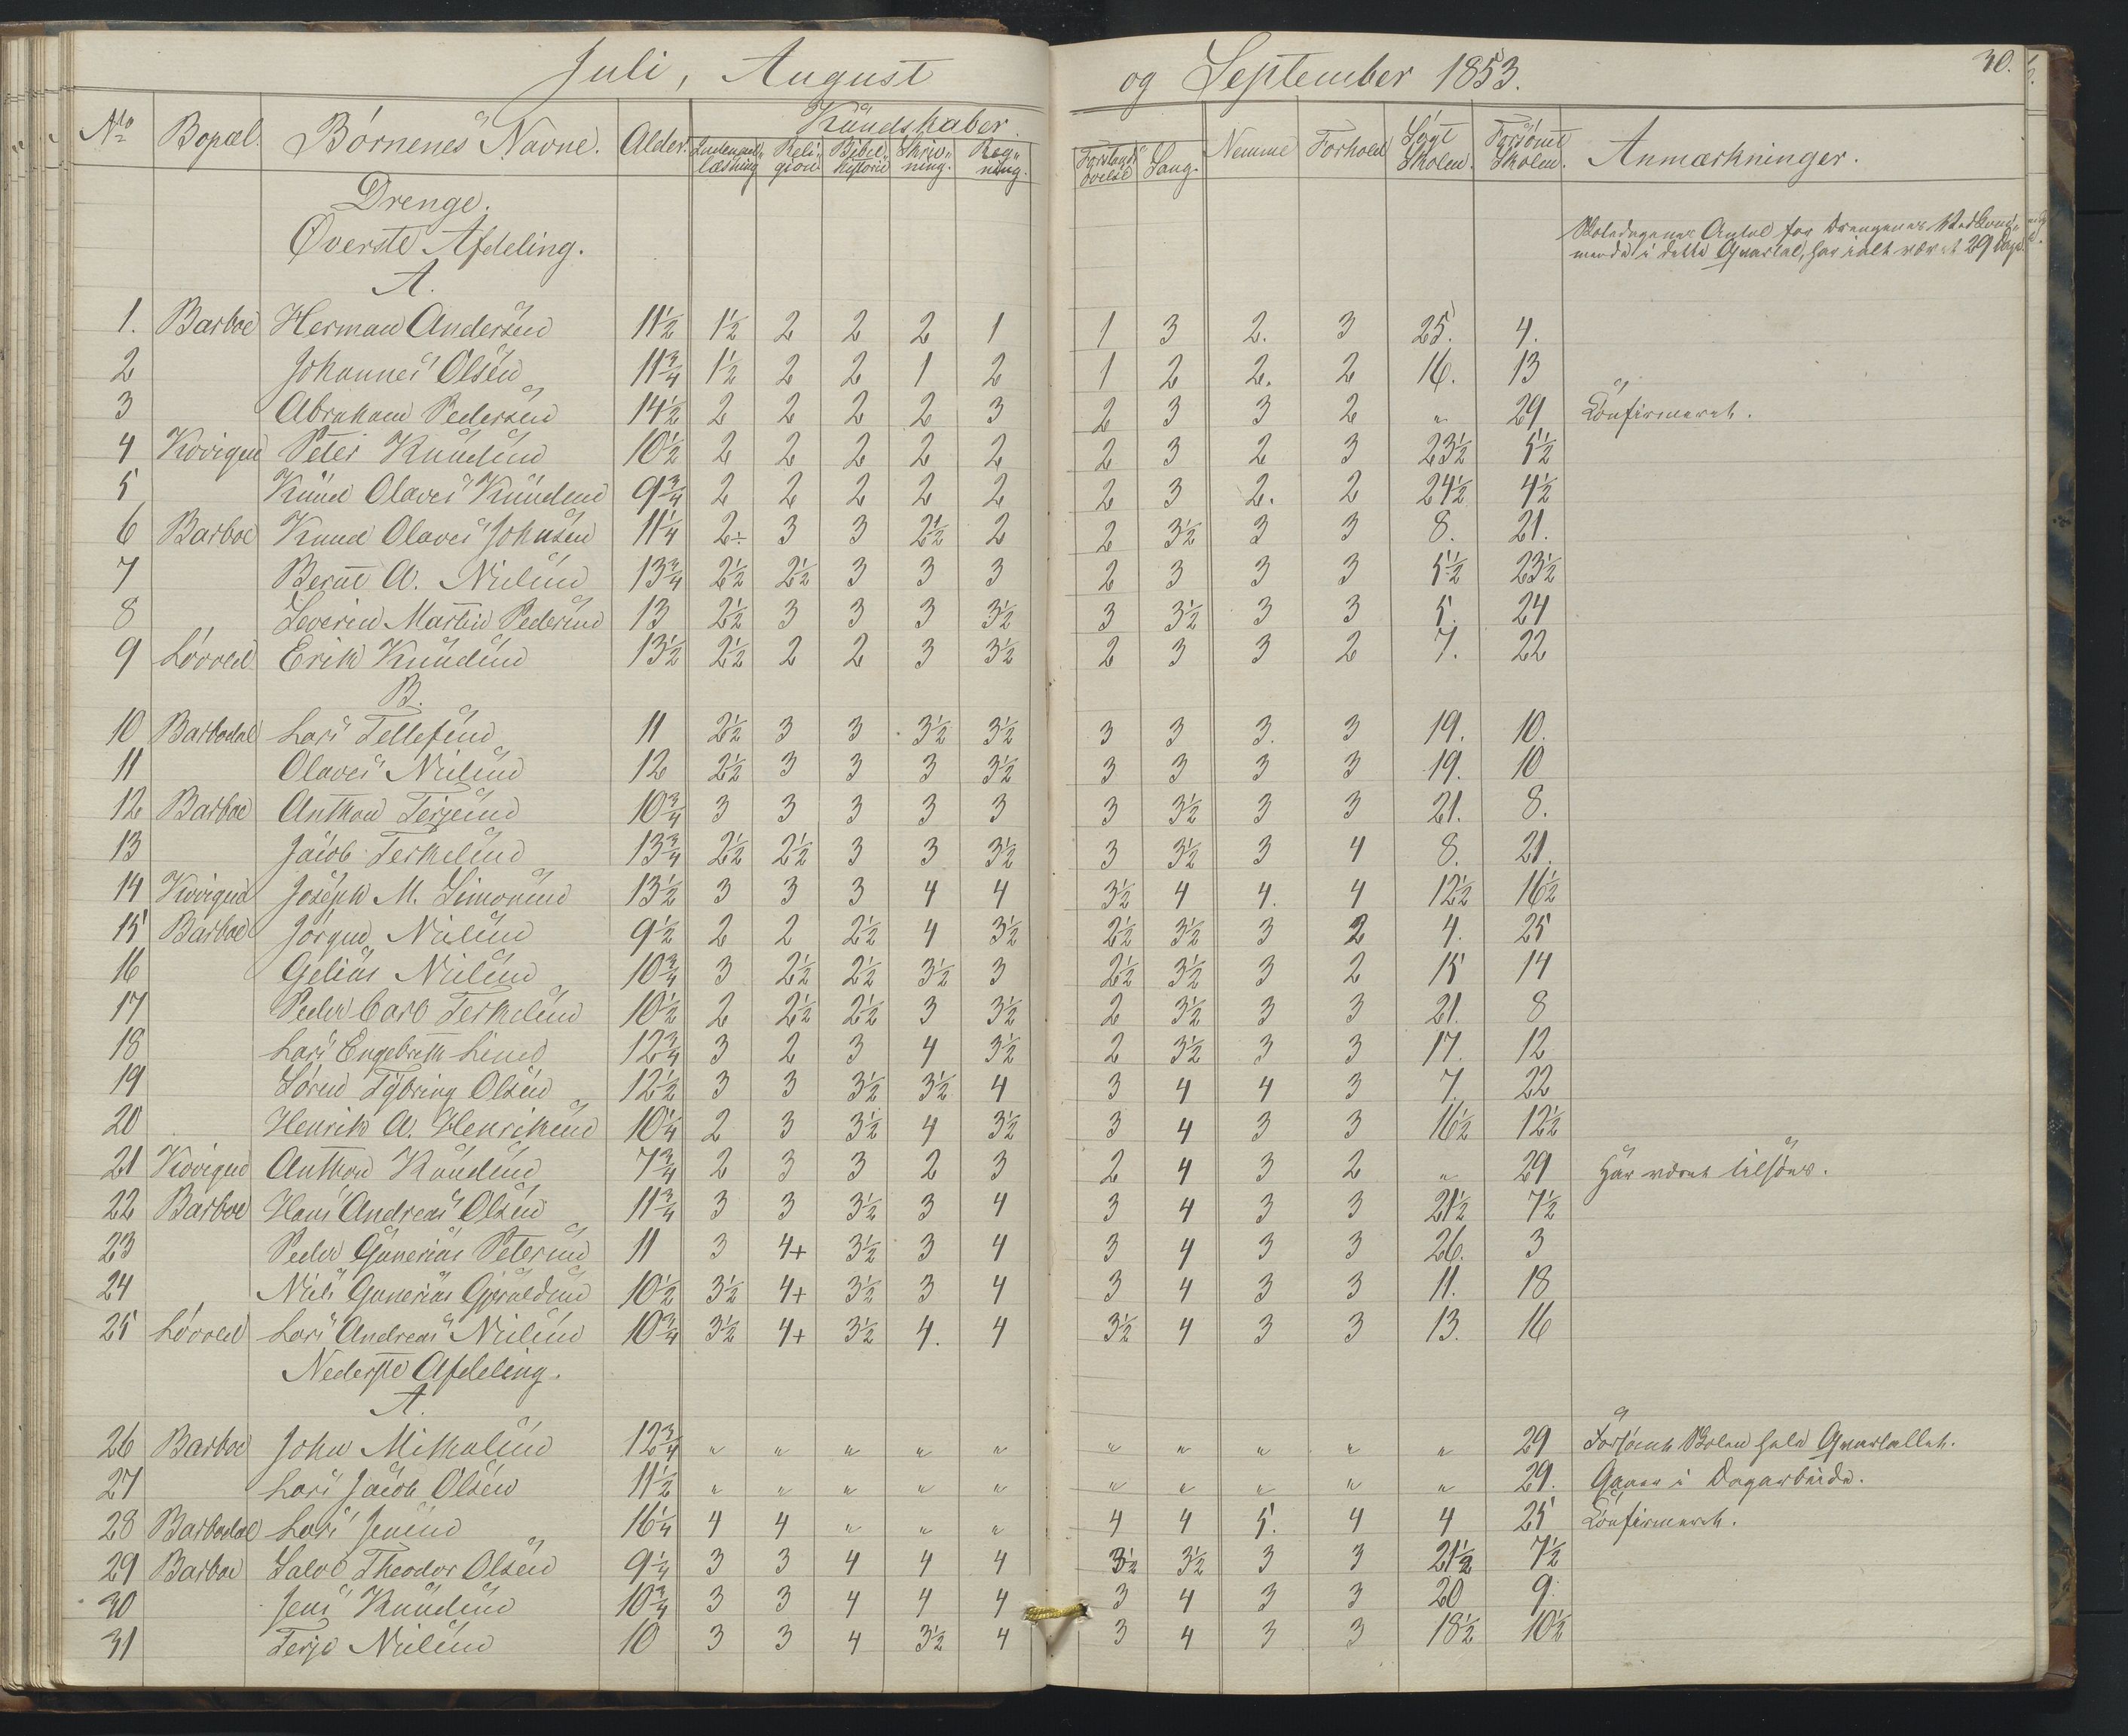 Juli, August og September 1853. 30.
No Bopæl. Børnenes Navne. Alder. Kundskaber. Nemme Forhold Søgt Skolen. Forsømt Skolen. Anmærkninger.
Indenadlæsning Religion Bibelhistorie Skrivning. Regning. Forstandsøvelse Sang.
Drenge.
Øverste Afdeling.
Skoledagenes Antal for Drengenes Vedkommende i dette Qvartal, har ialt været 29 Dage.
A.
1. Barboe Herman Andersen 11½ 1½ 2 2 2 1 1 3 2. 3 25. 4.
2 Johannes Olsen 11¾ 1½ 2 2 1 2 1 2 2. 2 16. 13
3 Abraham Pedersen 14½ 2 2 2 2 3 2 3 3 2 " 29 Confirmeret.
4 Kvigen Peter Knudsen 10½ 2 2 2 2 2 2 3 2 3 23½ 5½
5 Knud Olaves Knudsen 9¾ 2 2 2 2 2 2 3 2. 2 24½ 4½
6 Barboe Knud Olaves Johnsen 11¼ 2÷ 3 3 2½ 2 2 3½ 3 3 8. 21.
7 Bernt A. Nielsen 13¾ 2½ 2½ 3 3 3 2 3 3 3 5½ 23½
8 Severin Martin Pedersen 13 2½ 3 3 3 3½ 3 3½ 3 3 5. 24
9 Løvold Erik Knudsen 13½ 2½ 2 2 3 3½ 2 3 3 2 7. 22
B.
10 Barbodal Lars Tellefsen 11 2½ 3 3 3½ 3½ 3 3 3. 3 19. 10.
11 Olaves Nielsen 12 2½ 3 3 3 3½ 3 3 3 3 19. 10
12 Barboe Anthon Terjesen 10¾ 3 3 3 3 3 3 3½ 3 3 21. 8.
13 Jacob Terkelsen 13¾ 2½ 2½ 3 3 3½ 3 3½ 3 4 8. 21.
14 Kvigen Joseph M. Simonsen 13½ 3 3 3 4 4 3½ 4 4. 4 12½ 16½
15 Barboe Jørgen Nielsen 9½ 2 2 2½ 4 3½ 2½ 3½ 3 2 4. 25
16 Gelius Nielsen 10¾ 3 2½ 2½ 3½ 3 2½ 3½ 3 2 15 14
17 Peder Carl Terkelsen 10½ 2 2½ 2½ 3 3½ 2 3½ 3 3 21. 8
18 Lars Engebreth Lined 12¾ 3 2 3 4 3½ 2 3½ 3 3 17. 12
19 Søren Tybring Olsen 12½ 3 3 3½ 3½ 4 3 4 4 3 7. 22
20 Henrik A. Henriksen 10¼ 2 3 3½ 4 3½ 3 4 3 3 16½ 12½
21 Kvigen Anthon Knudsen 7¾ 2 3 3 2 3 2 4 3 2 " 29 Har været tilsøes.
22 Barboe Hans Andreas Olsen 11¾ 3 3 3½ 3 4 3 4 3 3 21½ 7½
23 Peder Gunerius Petersen 11 3 4+ 3½ 3 4 3 4 3 3 26. 3
24 Niels Gunerius Gjeruldsen 10½ 3½ 4+ 3½ 3 4 3 4 3 3 11. 18
25 Løvold Lars Andreas Nielsen 10¾ 3½ 4+ 3½ 4. 4 3½ 4 3 3 13. 16
Nederste Afdeling.
A.
26 Barboe John Mikkelsen 12¾ " " " " " " " " " " 29 Forsømt Skolen hele Qvartallet.
27 Lars Jacob Olsen 11½ " " " " " " " " " " 29. Gaaer i Dagarbeide.
28 Barbodal Lars Jensen 16¼ 4 4 " " " 4 4 5. 4 4 25 Confirmeret.
29 Barboe Salve Theodor Olsen 9¼ 3 3 4 4 4 3½ 3½ 3 3 21½ 7½
30 Jens Knudsen 10¾ 3 3 4 4 4 3 4 3 3 20 9.
31 Terje Nielsen 10 3 3 4 3½ 4 3 4 3 3 18½ 10½